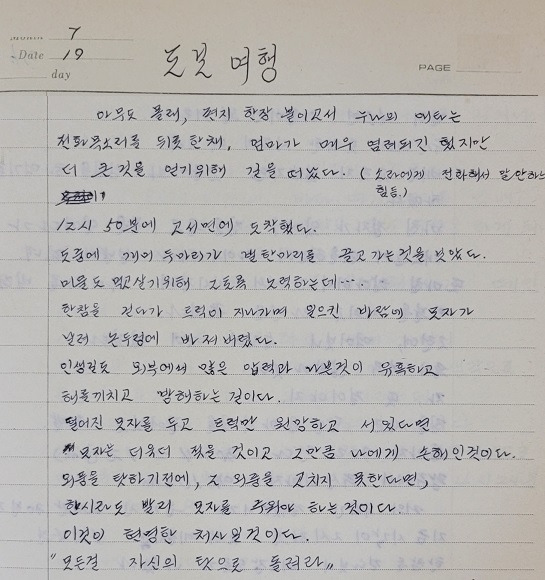 Month 7
Date 19
day
도보 여행
PAGE
아무도 몰래, 편지 한장 붙이고서 누나의 애타는
전화목소리를 뒤로한채, 엄마가 매우 염려되긴 했지만
더 큰것을 얻기위해 길을 떠났다. (소라에게 전화해서 말 안하는
힘듬.)
12시 50분에 고서면에 도착했다.
도중에 개미 두마리가 번탄아리를 끌고가는것을 보았다.
미물도 먹고살기위해 그토록 노력하는데….
한참을 걷다가 트럭이 지나가며 일으킨 바람에 모자가
날려 논두렁에 빠져버렸다.
인생길도 외부에서 많은 압력과 나쁜것이 유혹하고
해를끼치고 방해하는 길이다.
떨어진 모자를 두고 트럭만 원망하고 서있다면
모자는 더욱더 젖을 것이고 그만큼 나에게 손해인것이다.
외풍을 탓하기전에, 그 외풍을 고치지 못한다면,
한시라도 빨리 모자를 주워야 하는것이다.
이것이 현명한 처사일것이다.
"모든걸 자신의 탓으로 돌려라"